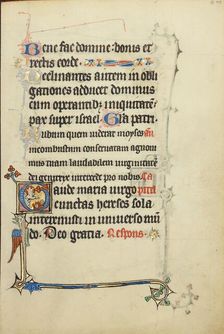 Bene fac domine : bonis et
rectis corde.
Declinantes autem in obli
gationes adducet dominus
cum operantibus iniquitate
pax super israel. Gla patri
Rubum quem viderat moyses
incombustum conservatam agnovimus
tuam laudabilem virginitatē
dei genitrix intercede pro nobis.
Gaude maria virgo
cunctas hereses sola
interemisti in universo mū
do. Deo gratias. Respons.